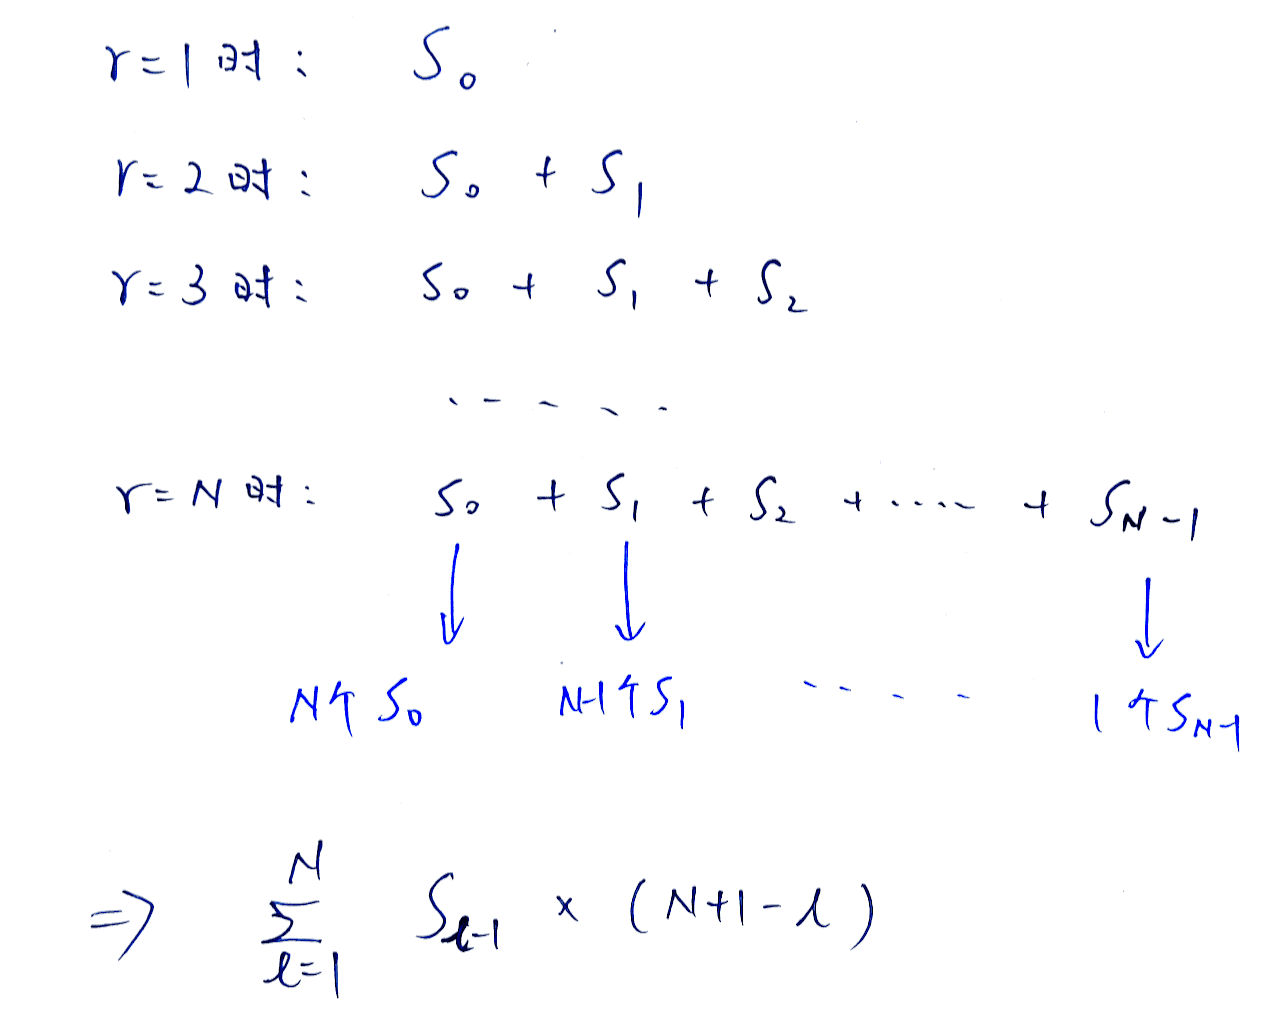 r=1时: S₀
r=2时: S₀ + S₁
r=3时: S₀ + S₁ + S₂
.....
r=N时: S₀ + S₁ + S₂ + ..... + S_{N-1}
↓ ↓ ↓
N个S₀ N-1个S₁ .... 1个S_{N-1}
⇒ \sum_{l=1}^{N} S_{l-1} × (N+1-l)